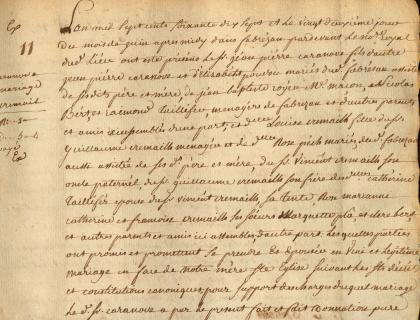 11
mariage
cremailh
L'an mil sept cents soixante dix sept et le vingt deuxieme jour
du mois de juin apres midy dans fabrezan par devant le no.re Royal
dud. lieu ont été presens le sr. jean pierre caranove fils d'autre
jean pierre caranove et d'elisabeth mariés dud. fabrezan assisté
de ses dits pere et mere, de jean baptiste roger me. maçon, et Nicolas
Bertos raimond taillefer, menagers de fabrezan et d'autres parents
et amis assemblés d'une part, et d.elle Louise cremailh fille du sr.
guillaume cremailh menager et de d.elle Rose pech mariés dud. fabrezan
aussi assistée de ses d. pere et mere du sr. vincent cremailh son
oncle paternel, du sr. guillaume cremailh son frere des d.elles catherine
taillefer epouse du sr. vincent cremailh, sa tante, Rose marianne
catherine et francoise cremailh ses sœurs marguette clerc
et autres parents et amis ici assemblés, d'autre part. Lesquelles parties
ont promis et promettent se prendre et Epouser en vrai et legitime
mariage en face de Notre mere ste Eglise suivant les sts decrets
et constitutions canoniques, pour support des charges duquel mariage
le d. sr. caranove a par le present fait et fait donnation pure